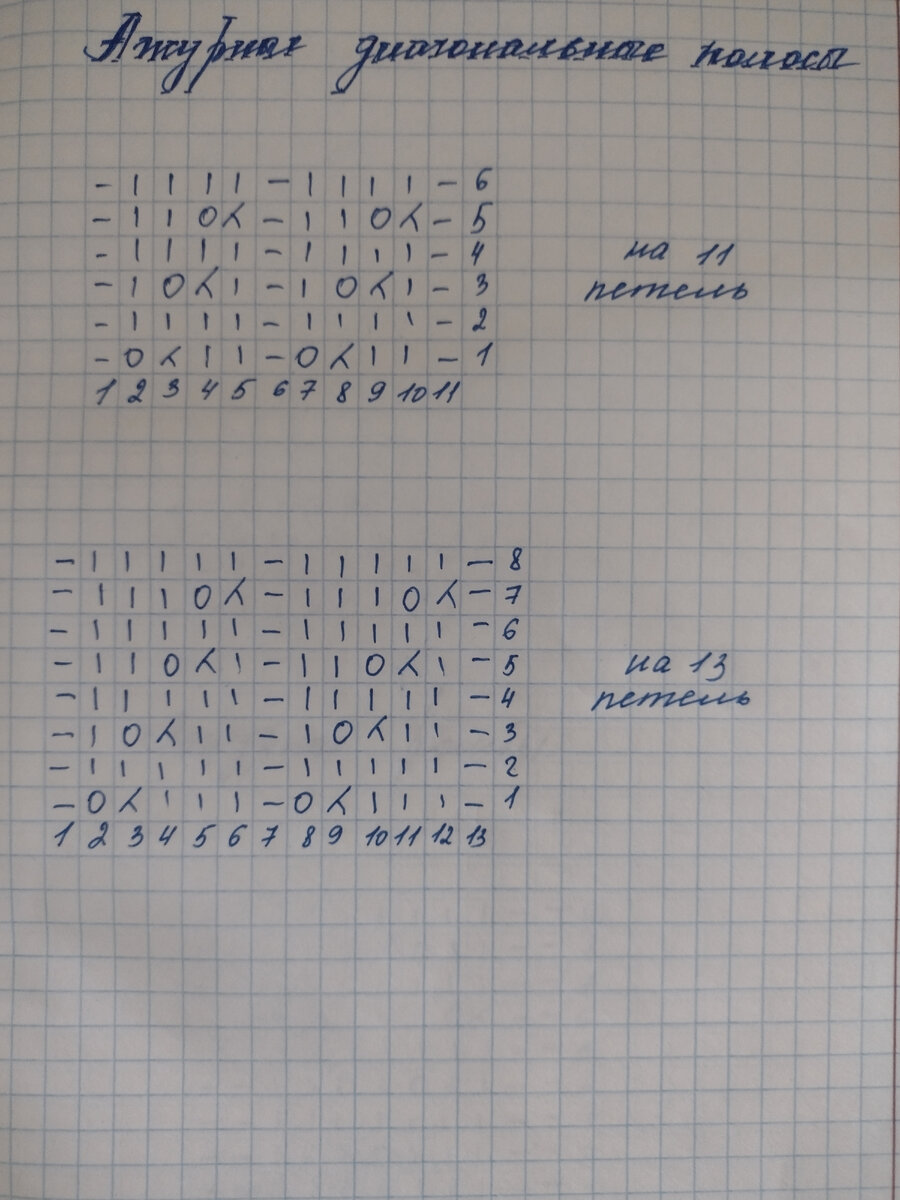 Ажурные диагональные полосы
- | | | | - | | | | - 6
- | | O ⋌ - | | O ⋌ - 5
- | | | | - | | | | - 4
на 11
- | O ⋌ | - | O ⋌ | - 3
петель
- | | | | - | | | | - 2
- O ⋌ | | - O ⋌ | | - 1
1 2 3 4 5 6 7 8 9 10 11
- | | | | | - | | | | | - 8
- | | | O ⋌ - | | | O ⋌ - 7
- | | | | | - | | | | | - 6
- | | O ⋌ | - | | O ⋌ | - 5
на 13
- | | | | | - | | | | | - 4
петель
- | O ⋌ | | - | O ⋌ | | - 3
- | | | | | - | | | | | - 2
- O ⋌ | | | - O ⋌ | | | - 1
1 2 3 4 5 6 7 8 9 10 11 12 13